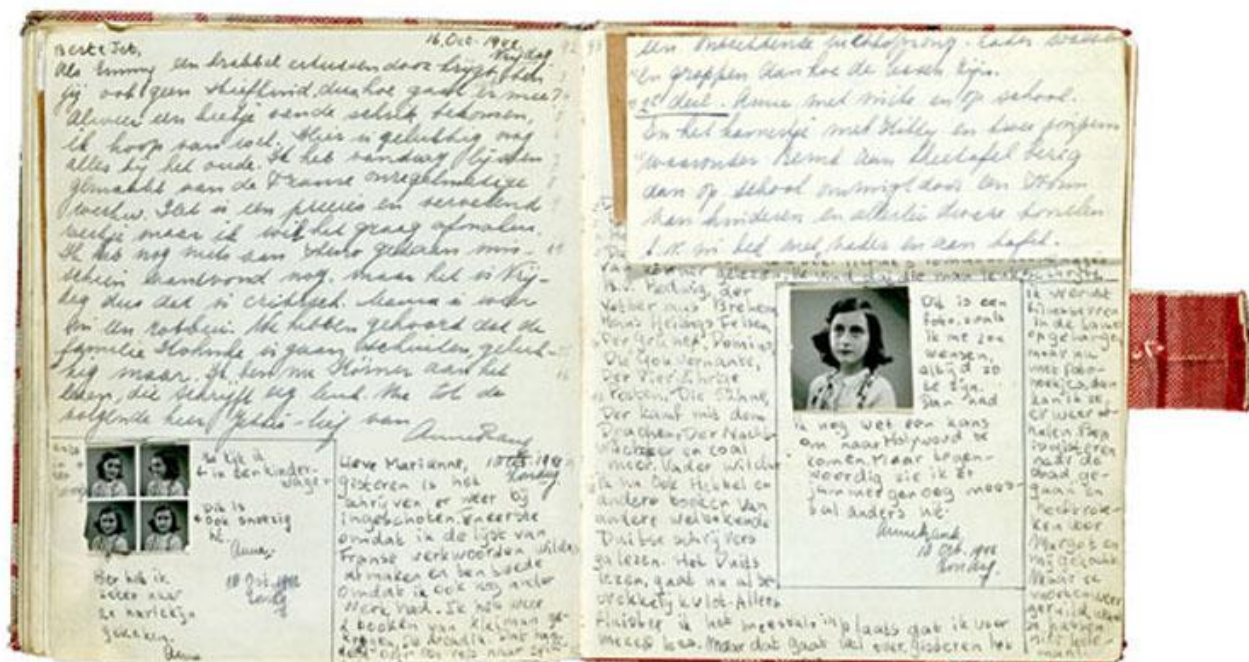 16. Oct. 1942
Vrijdag
Beste Jet,
Als Emmy een krabbel ertussendoor krijgt, ben
jij ook geen stiefkind, dus hoe gaat er mee?
Alweer een beetje van de schrik bekomen,
ik hoop van wel. Hier is gelukkig nog
alles bij het oude. Ik heb vandaag lijsten
gemaakt van de Franse onregelmatige
werkw. Het is een precies en vervelend
werkje maar ik wil het graag afmaken.
Ik heb nog niets aan steno gedaan mis-
schien vanavond nog. maar het is Vrij-
dag dus dat is critisch. Mama is weer
in en robbein. We hebben gehoord dat de
familie is gaan geluk-
kig maar. Ik ben nu Körner aan het
lezen, die schrijft erg leuk. Nu tot de
volgende keer Jettie-lief van
Anne Frank
Nu kijk ik
in een kinder-
wagen
Dit is
ook snoezig
hè.
Anne.
Hier heb ik
zeker naar
een harlekijn
gekeken.
Anne
18 Oct. 1942
Zondag
Lieve Marianne, 18 Oct. 1942
Zondag
gisteren is het
schrijven er weer bij
ingeschoten. Ten eerste
omdat ik de lijst van
Franse werkwoorden wilde
afmaken en ten tweede
omdat ik ook nog ander
werk had. Ik heb weer
2 boeken van Kleiman ge-
kregen, de Arcadia, dat han-
delt over een reis naar
een Later wassen
en grappen aan hoe de lessen zijn.
2e deel. Anne met micke en op school.
In het kamertje met Hilly en twee poppen
waaronder aan theetafel bezig
dan op school omringd door een drom
van kinderen en allerlei dwaze tonelen
b.v. in bed met vader en aan tafel.
van Körner gelezen, ik vind dat die man leuk schrijft
B.v. Hedwig, der
Vetter aus Bremen,
Hans Heilings Felsen,
Der Grüne Domino,
Die Gouvernante,
Der Vierjährige
Posten, Die Sühne,
Der Kampf mit dem
Drachen, Der Nacht-
wächter en zoal
meer. Vader wil dat
ik nu ook Hebbel en
andere boeken van
andere welbekende
Duitse schrijvers
ga lezen. Het Duits
lezen, gaat nu al be-
trekkelijk vlot. Alleen
fluister ik het meestal in plaats dat ik voor
mezelf lees. Maar dat gaat wel over gisteren heb
Dit is een
foto, zoals
ik me zou
wensen,
altijd zo
te zijn.
Dan had
ik nog wel een kans
om naar Holywood te
komen. Maar tegen-
woordig zie ik er
jammer genoeg mees-
tal anders uit.
Anne Frank
18 Oct. 1942
Zondag.
ik weer
filmsterren
in de kamer
opgehangen
maar nu
met foto-
hoekjes, dan
kan ik ze
er weer af-
halen. Bep
is gisteren
naar de
stad ge-
gaan en
heeft rok-
ken voor
Margot en
mij gekocht.
Maar ze
moeten weer
geruild